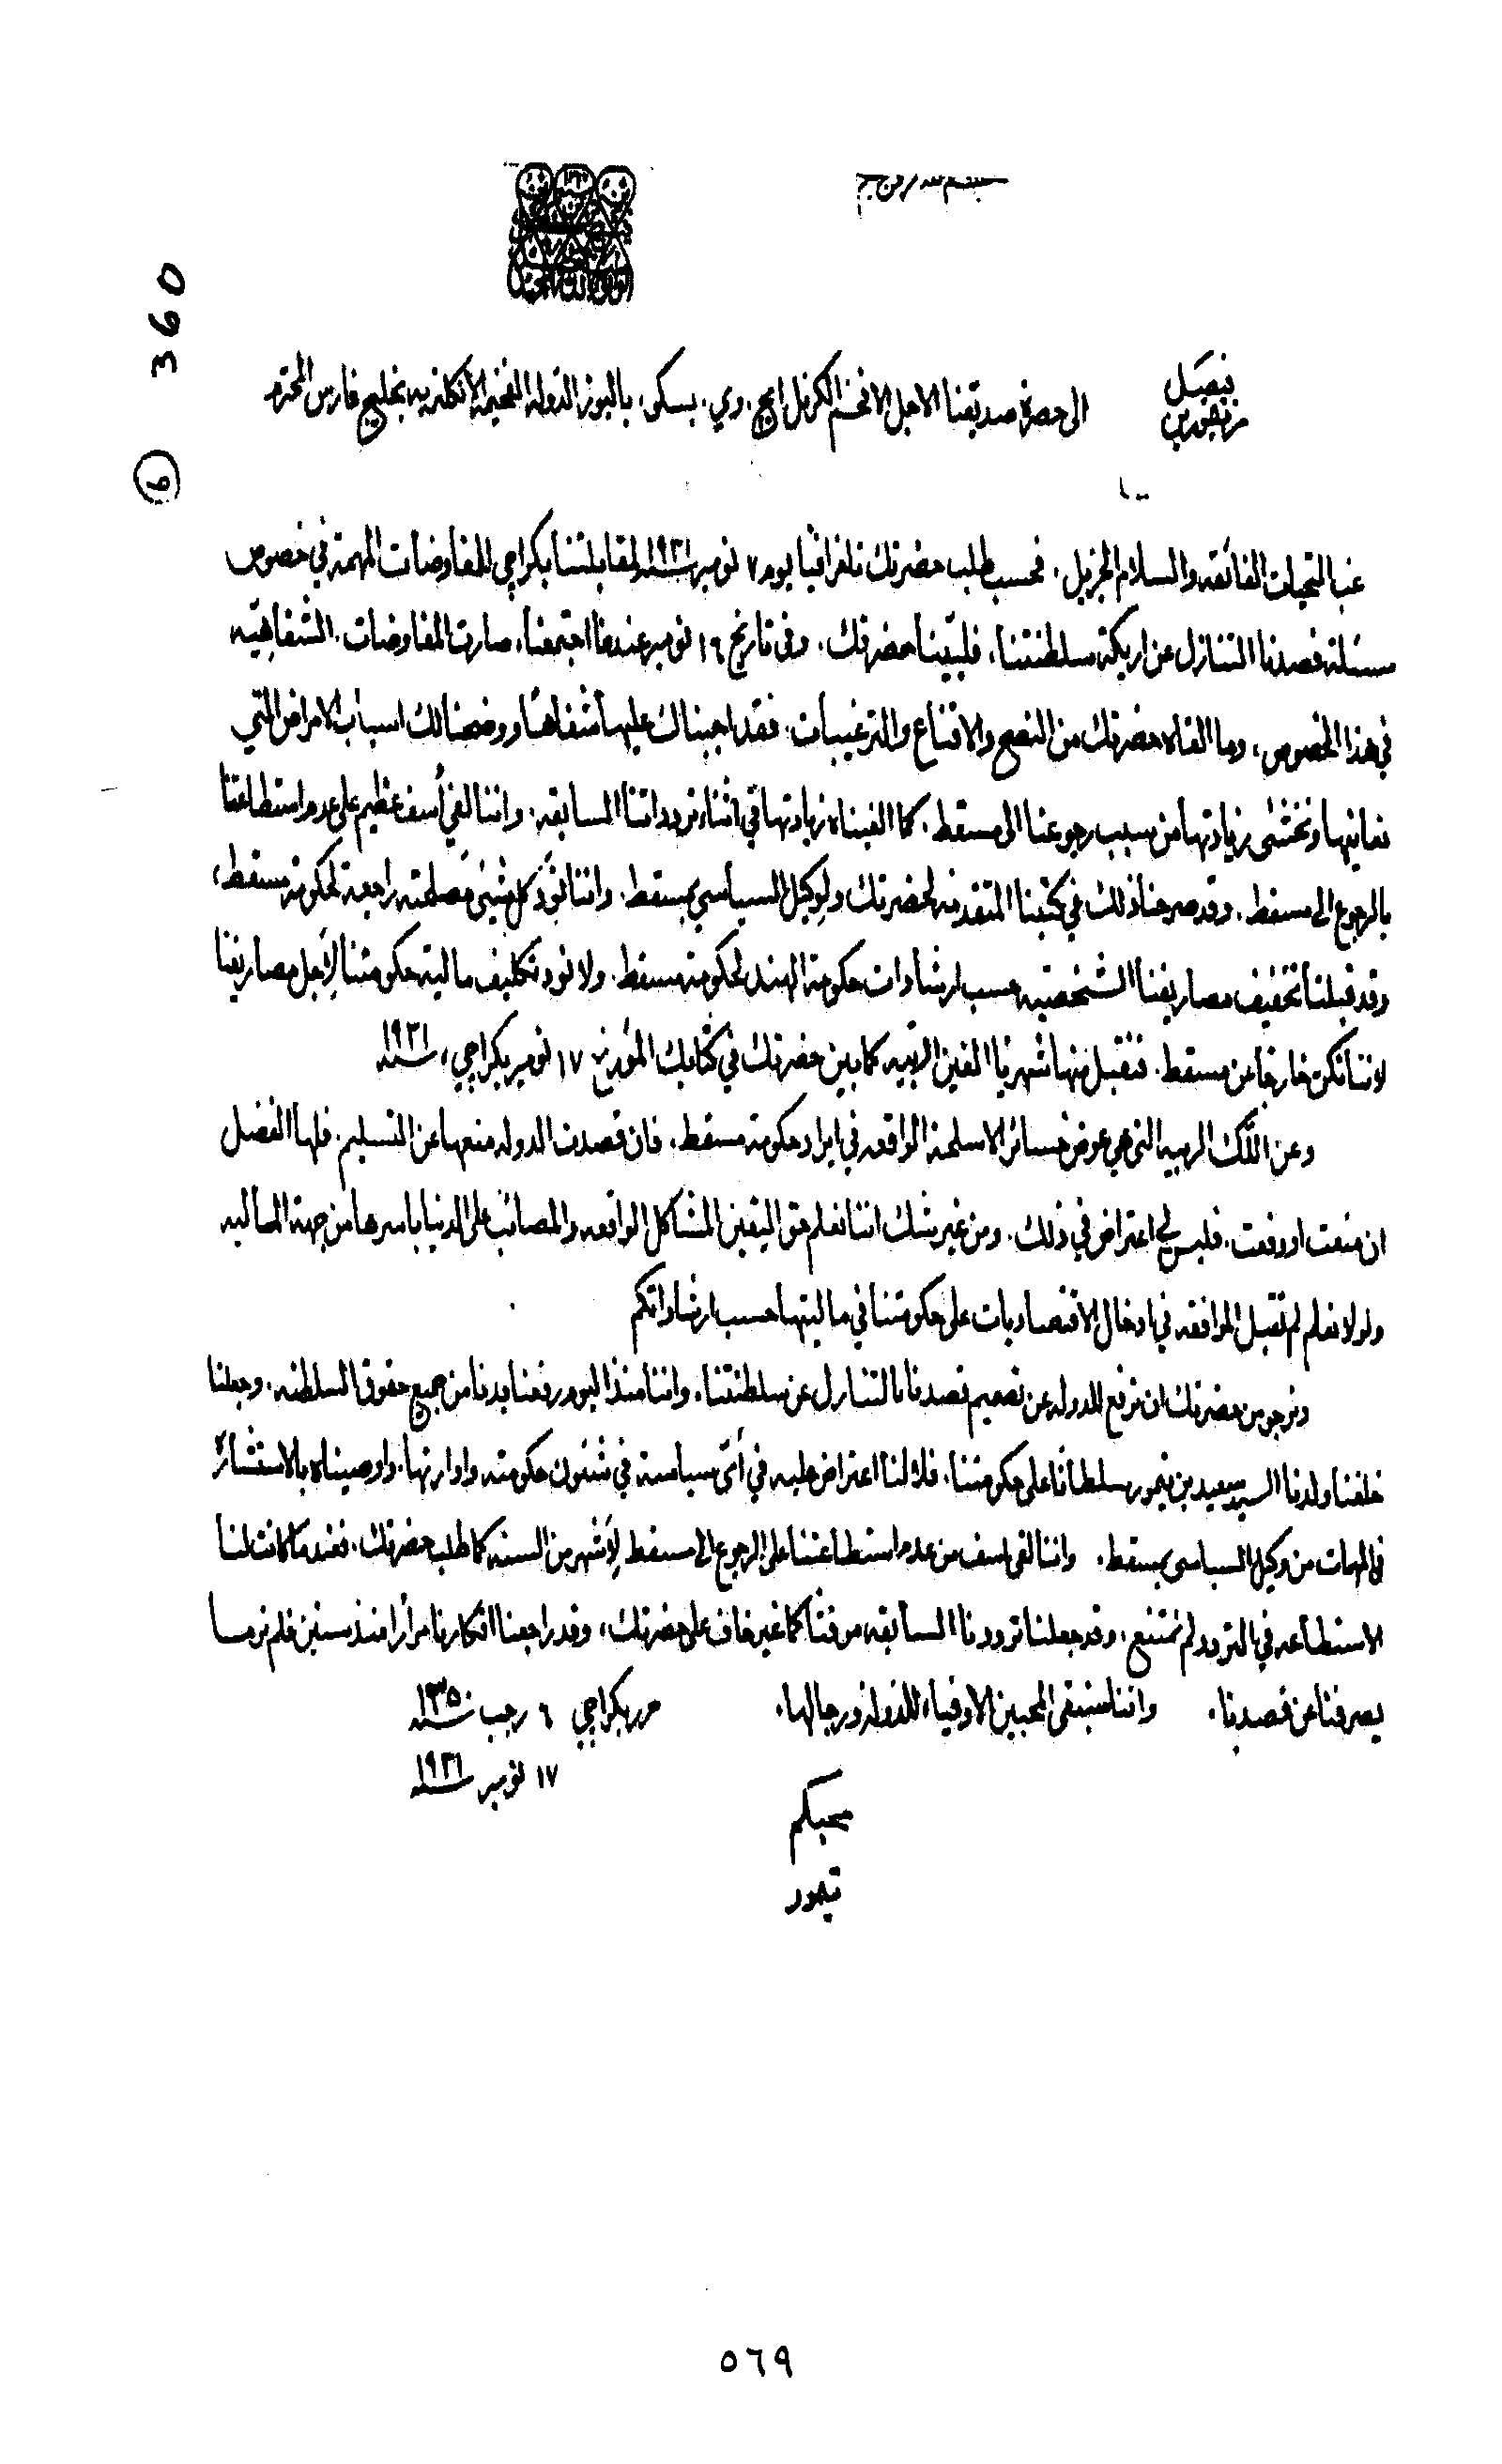 بسم الله الرحمن الرحيم
360
6
من تيمور بن فيصل
الى حضرة صديقنا الاجل الافخم الكرنل ايج. وي. بسكو، باليوز الدولة الفخيمة الانكليزيه بخليج فارس المحترم
غب التحيات الفائقه والسلام الجزيل. فحسب طلب حضرتك تلغرافيا يوم ٧ نومبر سنه ١٩٣١ لمقابلتنا بكراچي للمفاوضات المهمة في خصوص
مسئلة قصدنا التنازل عن اريكة سلطنتنا، فلبّينا حضرتك. وفى تاريخ ١٦ نومبر عندما اجتمعنا، صارت المفاوضات الشفاهيّه
في هذا الخصوص، وما القاه حضرتك من النصح والاقناع والترغيبات. فقد اجبناك عليها شفاهًا ووضحنا لك اسباب الامراض التي
نعانيها ونخشى زيادتها من سبب رجوعنا الى مسقط. كما الفيناه زيادتها في اثناء تردداتنا السابقه. واننا لفي أسف عظيم على عدم استطاعتنا
بالرجوع الى مسقط. وقد صرحنا ذلك في كتبنا المتقدمه لحضرتك ولوكيل السياسي بمسقط. واننا نودّ كل شيئ مصلحته راجعة لحكومة مسقط،
وقد قبلنا تخفيف مصاريفنا الشخصيه حسب ارشادات حكومة الهند لحكومة مسقط. ولا نود تكليف مالية حكومتنا لأجل مصاريفنا
لاننا نكن خارجًا عن مسقط. فنقبل منها شهريا الفين الربيه كما بين حضرتك في كتابك المؤرخ ١٧ نومبر بكراچي، سنه ١٩٣١
وعن اللّك الربيه التي هي عوض خسائر الاسلحة الواقعه في ايراد حكومة مسقط. فان قصدت الدوله منعها عن التسليم. فلها الفضل
ان منعت او دفعت. فليس لي اعتراض في ذلك. ومن غير شك اننا نعلم حق اليقين المشاكل الواقعه والمصائب على الدنيا باسرها من جهة الماليه
ولولا نعلم لم نقبل الموافقه في ادخال الاقتصاديات على حكومتنا في ماليتها حسب ارشاداتكم
ونرجو من حضرتك ان ترفع للدوله عن تصميم قصدنا بالتنازل عن سلطنتنا. واننا منذ اليوم رفعنا يدنا من جميع حقوق السلطنه. وجعلنا
خلفنا ولدنا السيد سعيد بن تيمور سلطانًا على حكومتنا. فلا لنا اعتراض عليه في أيّ سياسة في شئون حكومته وادارتها. واوصيناه بالاستشارة
في المهمات من وكيل السياسى بمسقط. واننا لفى اسف من عدم استطاعتنا على الرجوع الى مسقط لأشهر من السنه كما طلب حضرتك. فعندما كانت لنا
الاستطاعه في التردد لم نمتنع. وقد جعلنا ترددنا السابقه موقتًا كما غير خاف على حضرتك، وقد راجعنا افكارنا مرارا منذ سنين فلم نر ما
يصرفنا عن قصدنا. واننا سنبقى المحبين الاوفياء للدوله ورجالها. حرر بكراچي ٦ رجب سنه ١٣٥٠
١٧ نومبر سنه ١٩٣١
محبكم
تيمور
٥٦٩